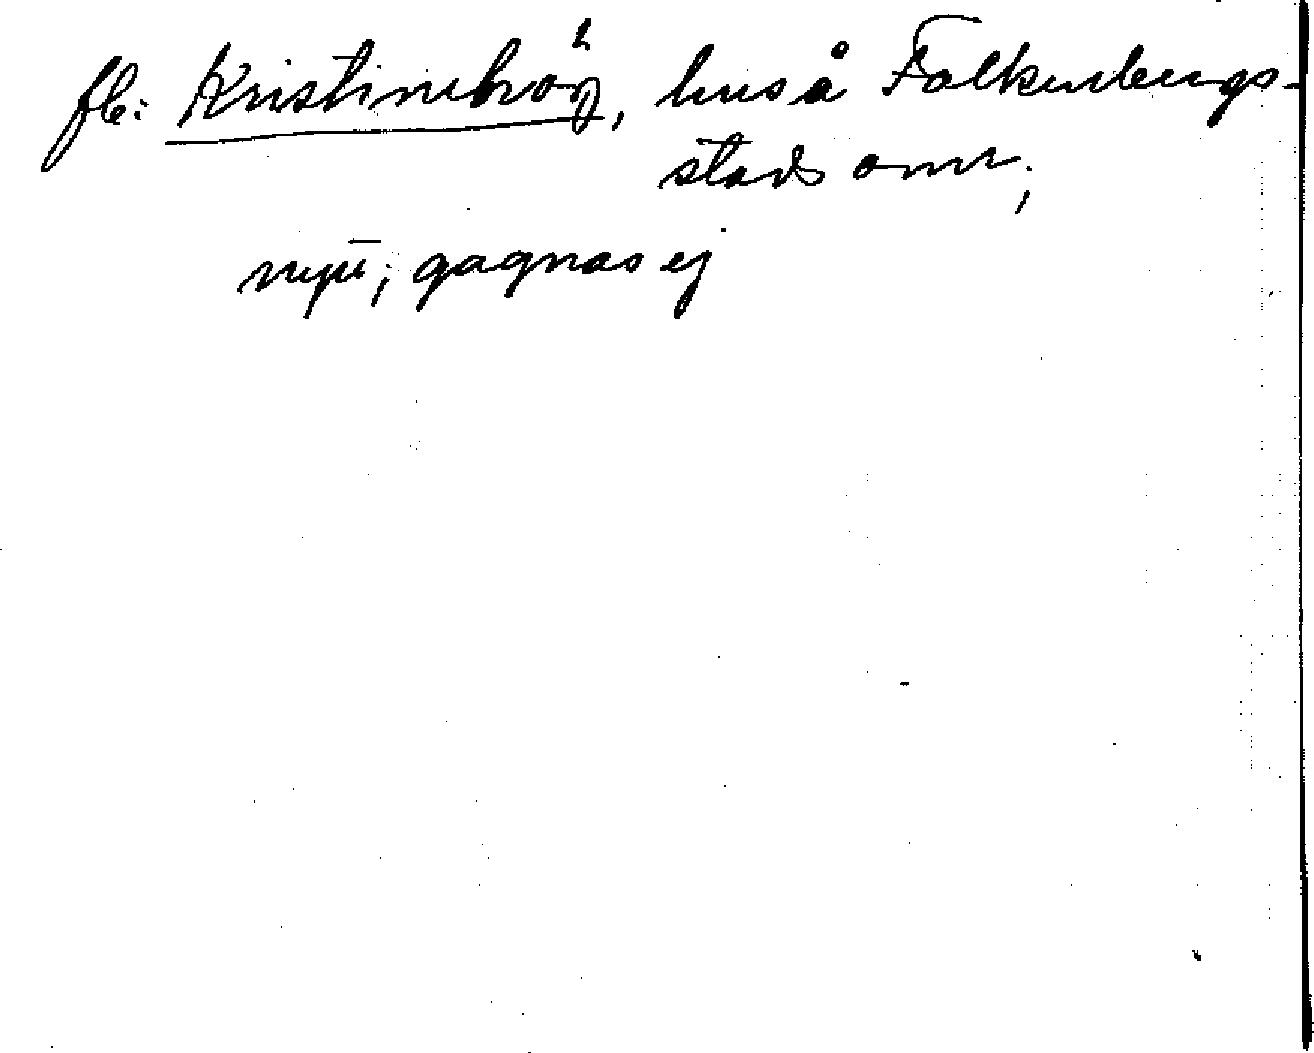 fb: Kristinehög, hus å Falkenbergs-
stads omr.;
nytt; gagnas ej